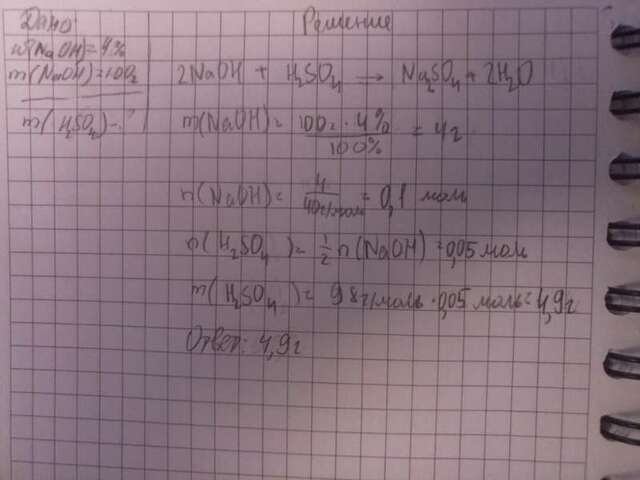 Дано
w(NaOH)=4%
m(NaOH)=100г
m(H2SO4)-?
Решение
2NaOH + H2SO4 → Na2SO4 + 2H2O
m(NaOH)= 100г · 4% / 100% = 4г
n(NaOH)= 4 / 40г/моль = 0,1 моль
n(H2SO4)= 1/2 n(NaOH) = 0,05 моль
m(H2SO4)= 98г/моль · 0,05 моль = 4,9г
Ответ: 4,9г